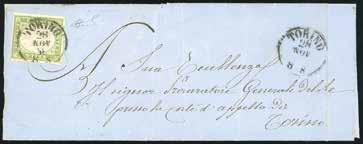 TORINO
28
NOV
8 S
TORINO
28
NOV
8 S
A Sua Eccellenza
Il signor Procuratore Generale
presso la corte d'appello di
Torino